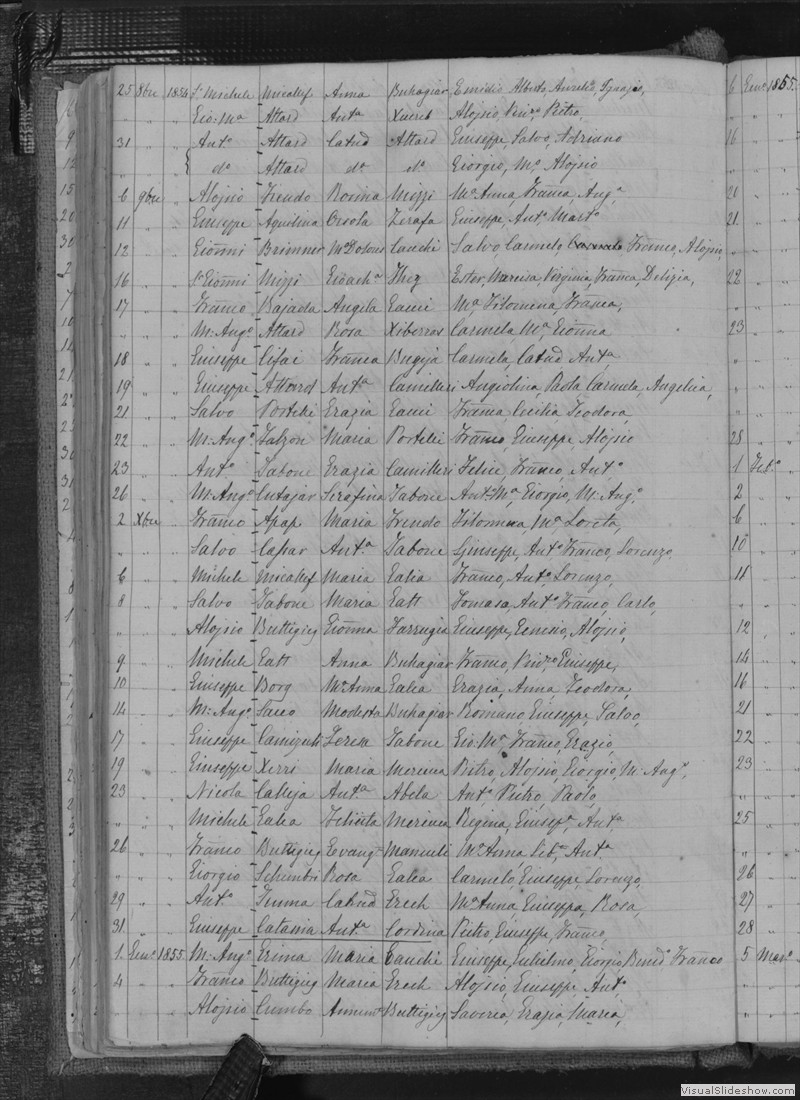 25 8bre 1854 Sr. Michele Micallef Anna Buhagiar Emidio Alberto, Aurelio, Ignazio, 6 Genº 1855
" " " Gio: Mª Attard Antª Xuereb Aloisio, Vinzº Pietro,
31 " " Antº Attard Catud Attard Giuseppe, Salvo, Adriano 16
dº Attard dª dª Giorgio, Mª Aloisio
6 9bre " Aloisio Frendo Rosina Mizzi Mª Anna, Franca, Angª 20
11 " " Giuseppe Aquilina Orsola Zerafa Giuseppe, Antº Martº 21
12 " " Gionni Brimmer Mª Dolores Cauchi Salvo, Carmelo, Franco, Aloisio,
16 " " Sr Gionni Mizzi Gioachª Ester, Narcisa, Virginia, Franca, Delizia, 22
17 " " Franco Bajada Angela Gauci Mª Filomena, Franca,
" " " M: Angº Attard Rosa Xiberras Carmela, Mª Gionna 23
18 " " Giuseppe Cifai Franca Bugeja Carmela, Catud Antª
19 " " Giuseppe Attard Antª Camilleri Angiolina, Paola Carmela, Angelica,
21 " " Salvo Portelli Grazia Gauci Franca, Cicilia, Teodora,
22 " " M: Angº Falzon Maria Portelli Franco, Giuseppe, Aloisio 28
23 " " Antº Tabone Grazia Camilleri Felice Franco, Antº 1 Febº
26 " " M: Angº Cutajar Serafina Tabone Ant: Mª, Giorgio, M: Angº 2
2 Xbre " Franco Apap Maria Frendo Filomena, Mª Loreta, 6
" " " Salvo Caspar Antª Tabone Giuseppe, Antº Franco, Lorenzo 10
6 " " Michele Micallef Maria Galia Franco, Antº Lorenzo, 11
8 " " Salvo Tabone Maria Gatt Tomaso, Antº Franco, Carlo,
" " " Aloisio Buttigieg Gionna Farrugia Giuseppe, Aloisio, 12
9 " " Michele Gatt Anna Buhagiar Franco, Vinzº Giuseppe, 14
10 " " Giuseppe Borg Mª Anna Galea Grazia, Anna, Teodora, 16
14 " " M: Angº Sacco Modesta Buhagiar Romano, Giuseppe, Salvo, 21
17 " " Giuseppe Teresa Tabone Gio: Mª, Franco, Grazio, 22
19 " " Giuseppe Xerri Maria Merciva Pietro, Aloisio, Giorgio, M: Angº, 23
23 " " Nicola Calleja Antª Abela Antº Pietro, Paolo,
" " " Michele Galea Felicita Mercieca Regina, Giusepª, Antª 25
26 " " Franco Buttigieg Evangª Manueli Mª Anna, Antª
" " " Giorgio Schembri Rosa Galea Carmelo, Giuseppe, Lorenzo, 26
29 " " Antº Catud Grech Mª Anna, Giuseppa, Rosa, 27
31 " " Giuseppe Catania Antª Cordina Pietro, Giuseppe, Franco, 28
1 Genº 1855 M: Angº Grima Maria Cauchi Giuseppe, Gulielmo, Giorgio, Bened. Franco 5 Marº
4 " " Franco Buttigieg Maria Grech Aloisio, Giuseppe Antº
" " " Aloisio Cumbo Annunª Buttigieg Saveria, Grazia, Maria,
VisualSlideshow.com